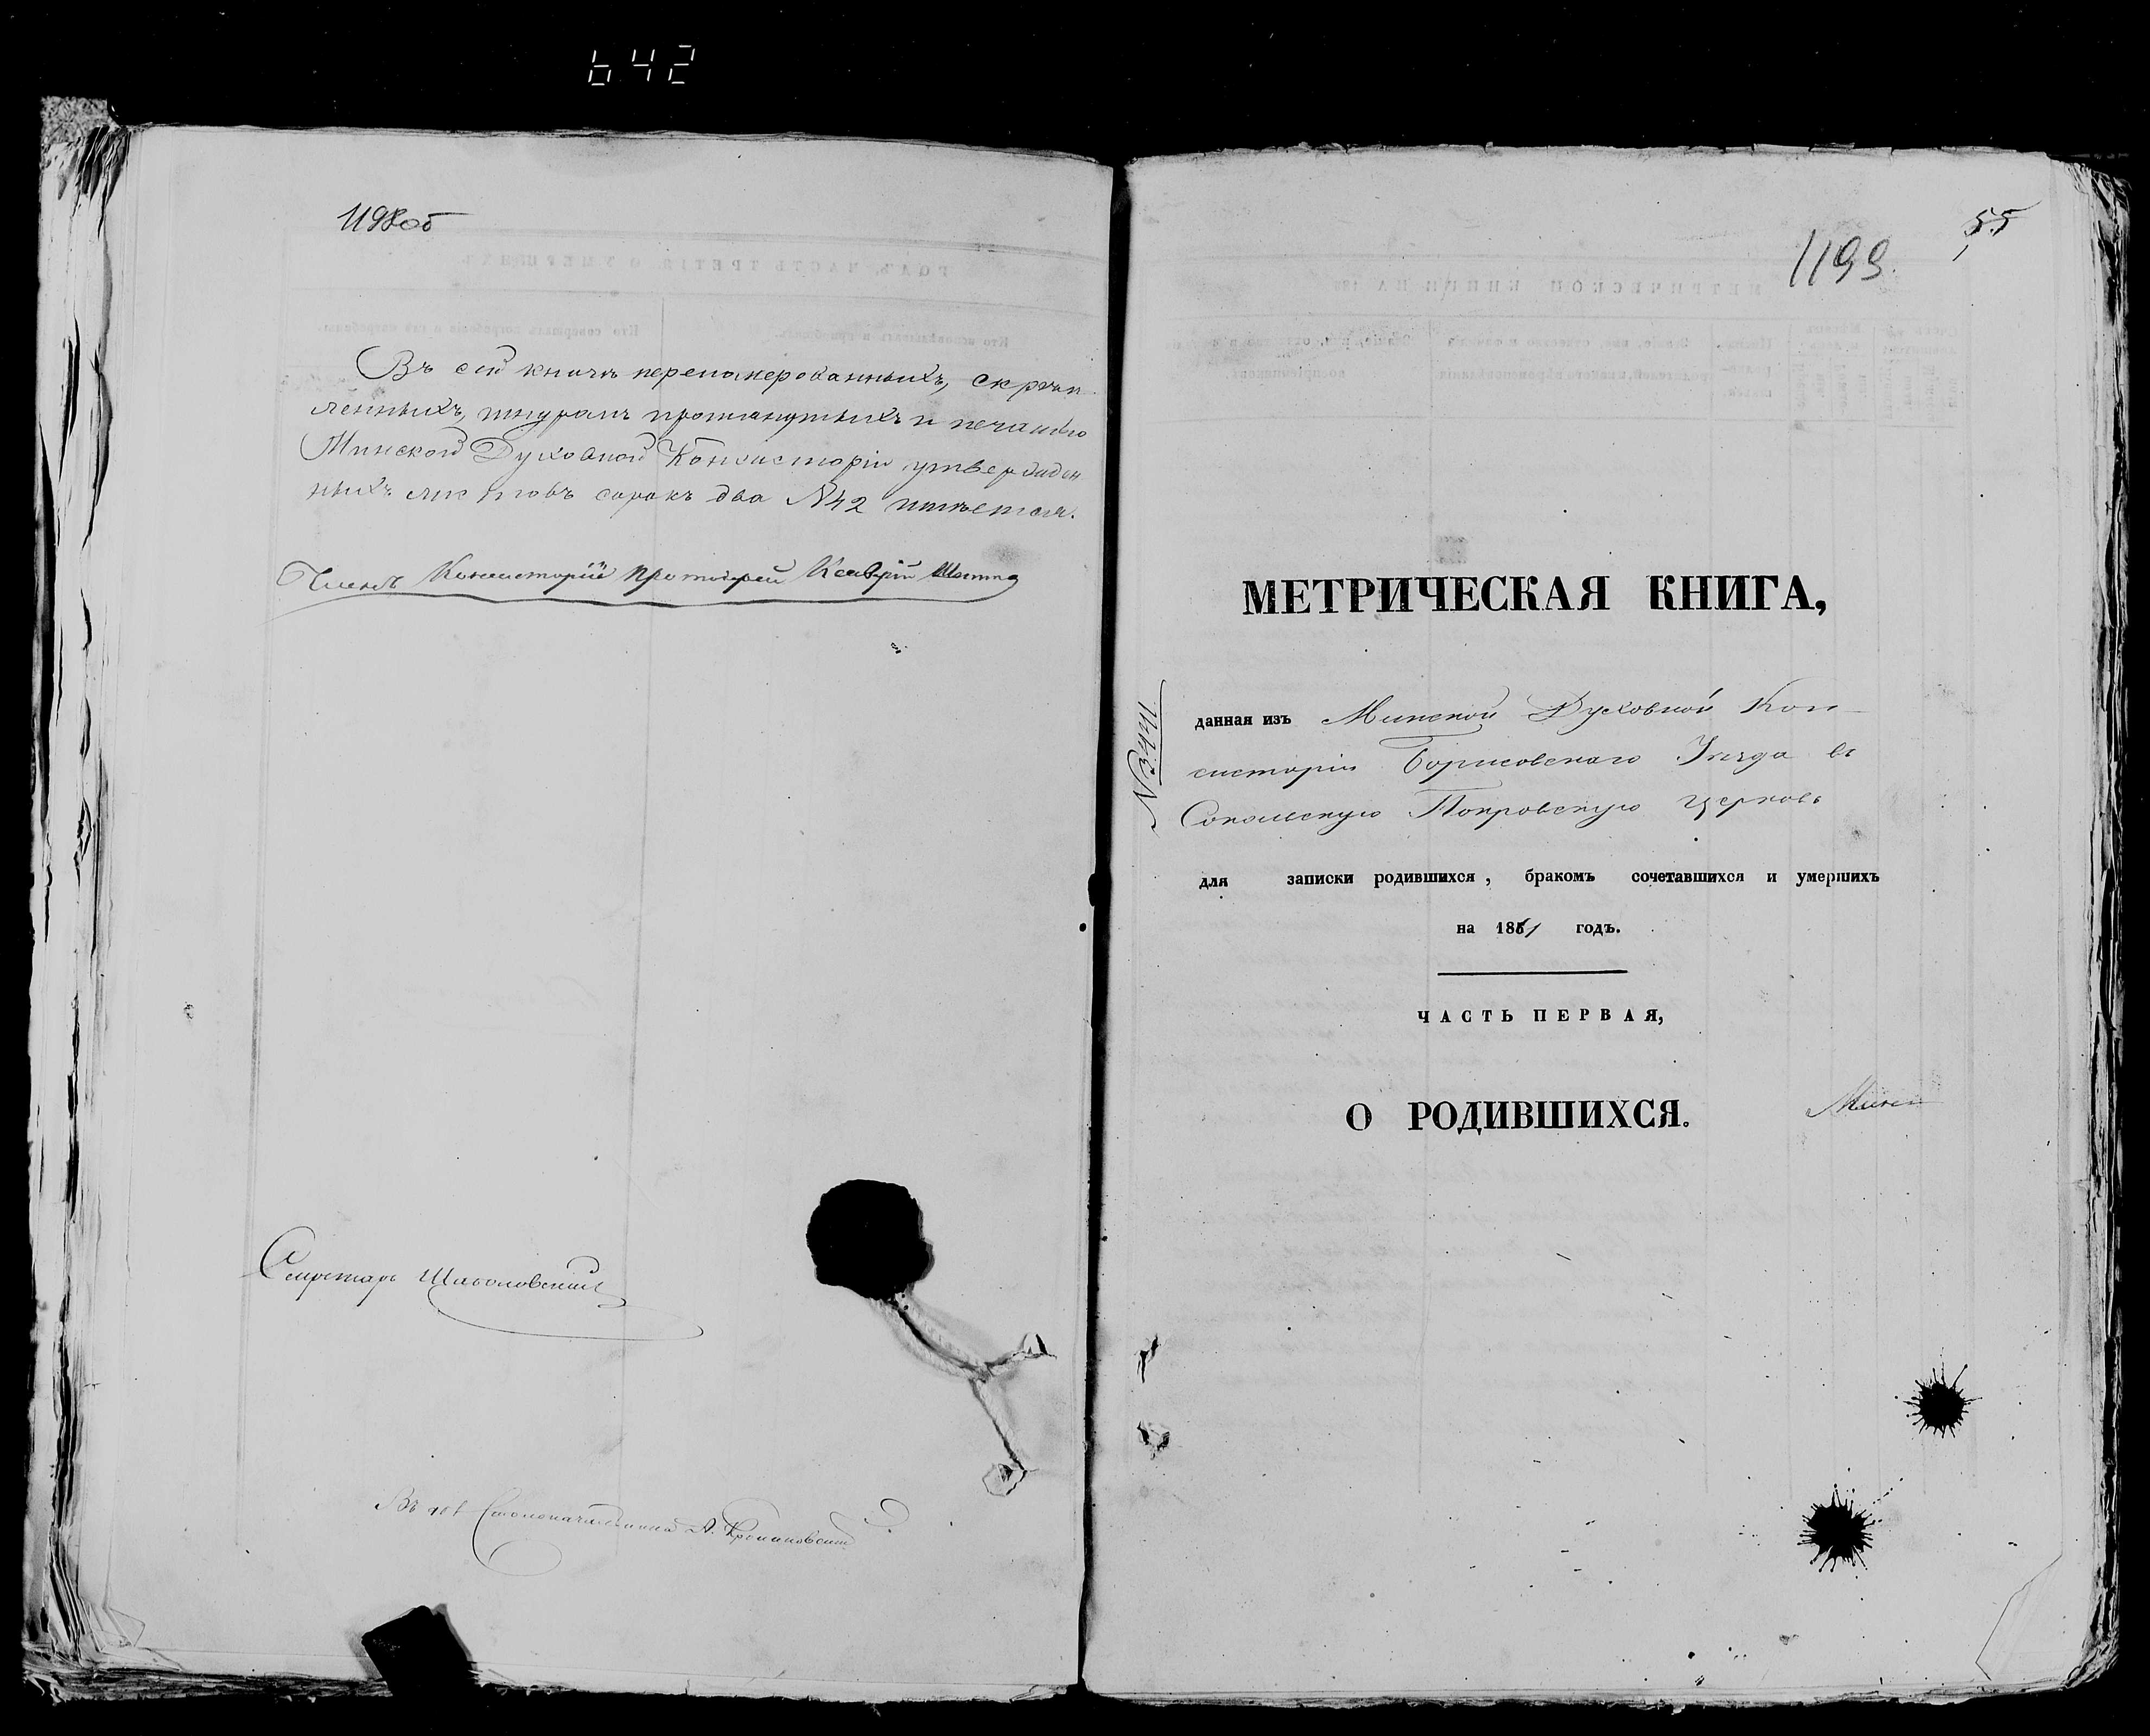 642
1198об
Въ сей книгѣ перепомерованныхъ, скрѣп
ленныхъ, шнуромъ протянутыхъ и печатью
Минской Духовной Консисторіи утвержден
ныхъ листовъ сорокъ два N42 имѣется.
Членъ Консисторіи протоіерей
Секретарь
Въ дол Столоначальника А.
55
1199.
МЕТРИЧЕСКАЯ КНИГА,
N 3441
данная изъ Минской Духовной Кон-
систоріи Борисовскаго Уѣзда въ
Сокольскую Покровскую церковь
для записки родившихся, бракомъ сочетавшихся и умершихъ
на 1861 годъ.
ЧАСТЬ ПЕРВАЯ,
О РОДИВШИХСЯ.